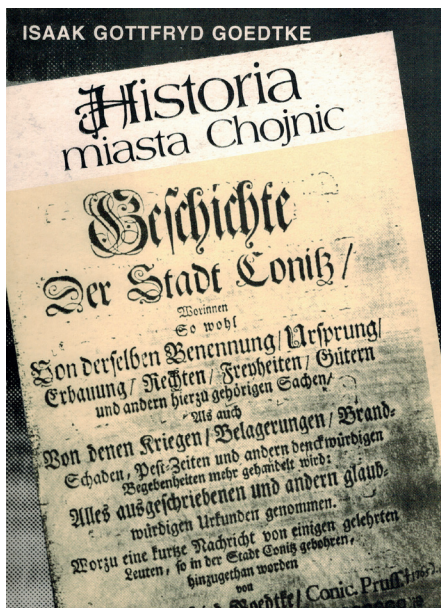 ISAAK GOTTFRYD GOEDTKE
Historia
miasta Chojnic
Geschichte
Der Stadt Conitz/
Worinnen
So wohl
Von derselben Benennung/Ursprung/
Erbauung/ Rechten/ Freyheiten/ Gütern
und andern hierzu gehörigen Sachen/
Als auch
Von denen Kriegen/Belagerungen/Brand-
Schaden, Pest-Zeiten und andern denckwürdigen
Begebenheiten mehr gehandelt wird:
Alles ausgeschriebenen und andern glaub-
würdigen Urkunden genommen.
Worzu eine kurtze Nachricht von einigen gelehrten
Leuten, so in der Stadt Conitz gebohren,
hinzugethan worden
von
Goedtke/ Conic. Pruss.